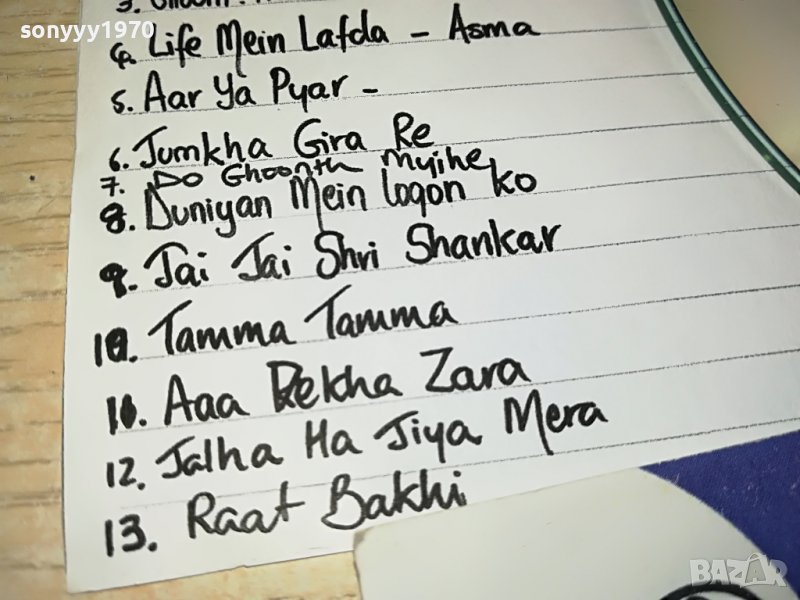 sonyyy1970
4. Life Mein Lafda - Asma
5. Aar Ya Pyar -
6. Jumkha Gira Re
7. Do Ghoonth Mujhe
8. Duniyan Mein logon ko
9. Jai Jai Shri Shankar
10. Tamma Tamma
11. Aaa Dekha Zara
12. Jalha Ha Jiya Mera
13. Raat Bakhi
BAZAR